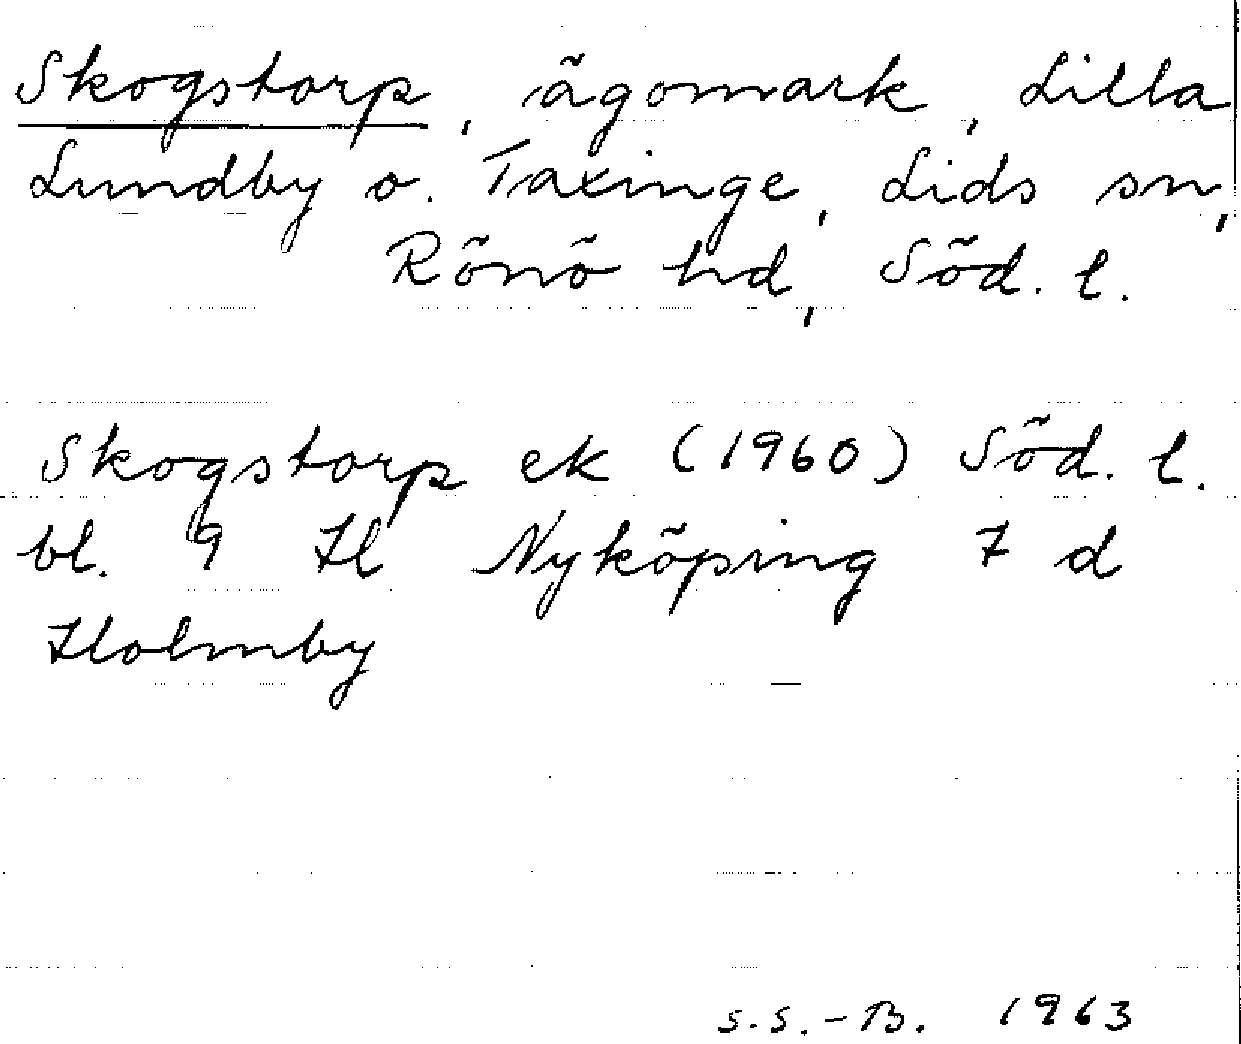 Skogstorp, ägomark, Lilla
Lundby o. Taxinge, Lids sn,
Rönö hd, Söd. l.
Skogstorp ek (1960) Söd. l.
bl. 9 H Nyköping 7 d
Holmby
S.S.-B. 1963